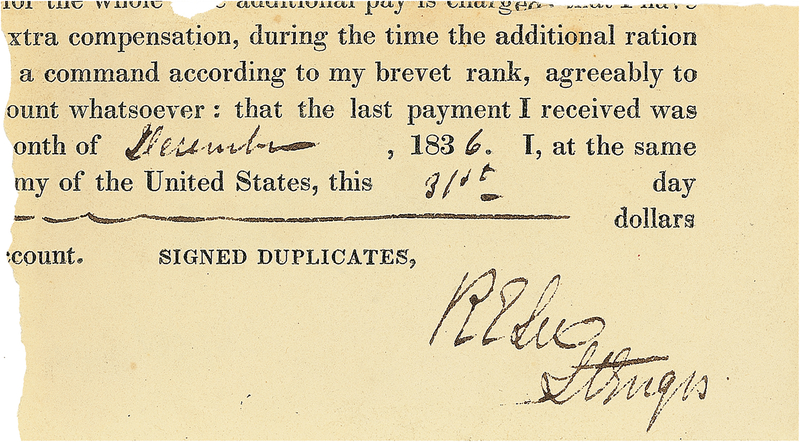 for the whole additional pay is charged that I have
xtra compensation, during the time the additional ration
a command according to my brevet rank, agreeably to
ount whatsoever : that the last payment I received was
onth of December , 1836. I, at the same
my of the United States, this 31st day
dollars
count. SIGNED DUPLICATES,
R E Lee
Lt Engrs